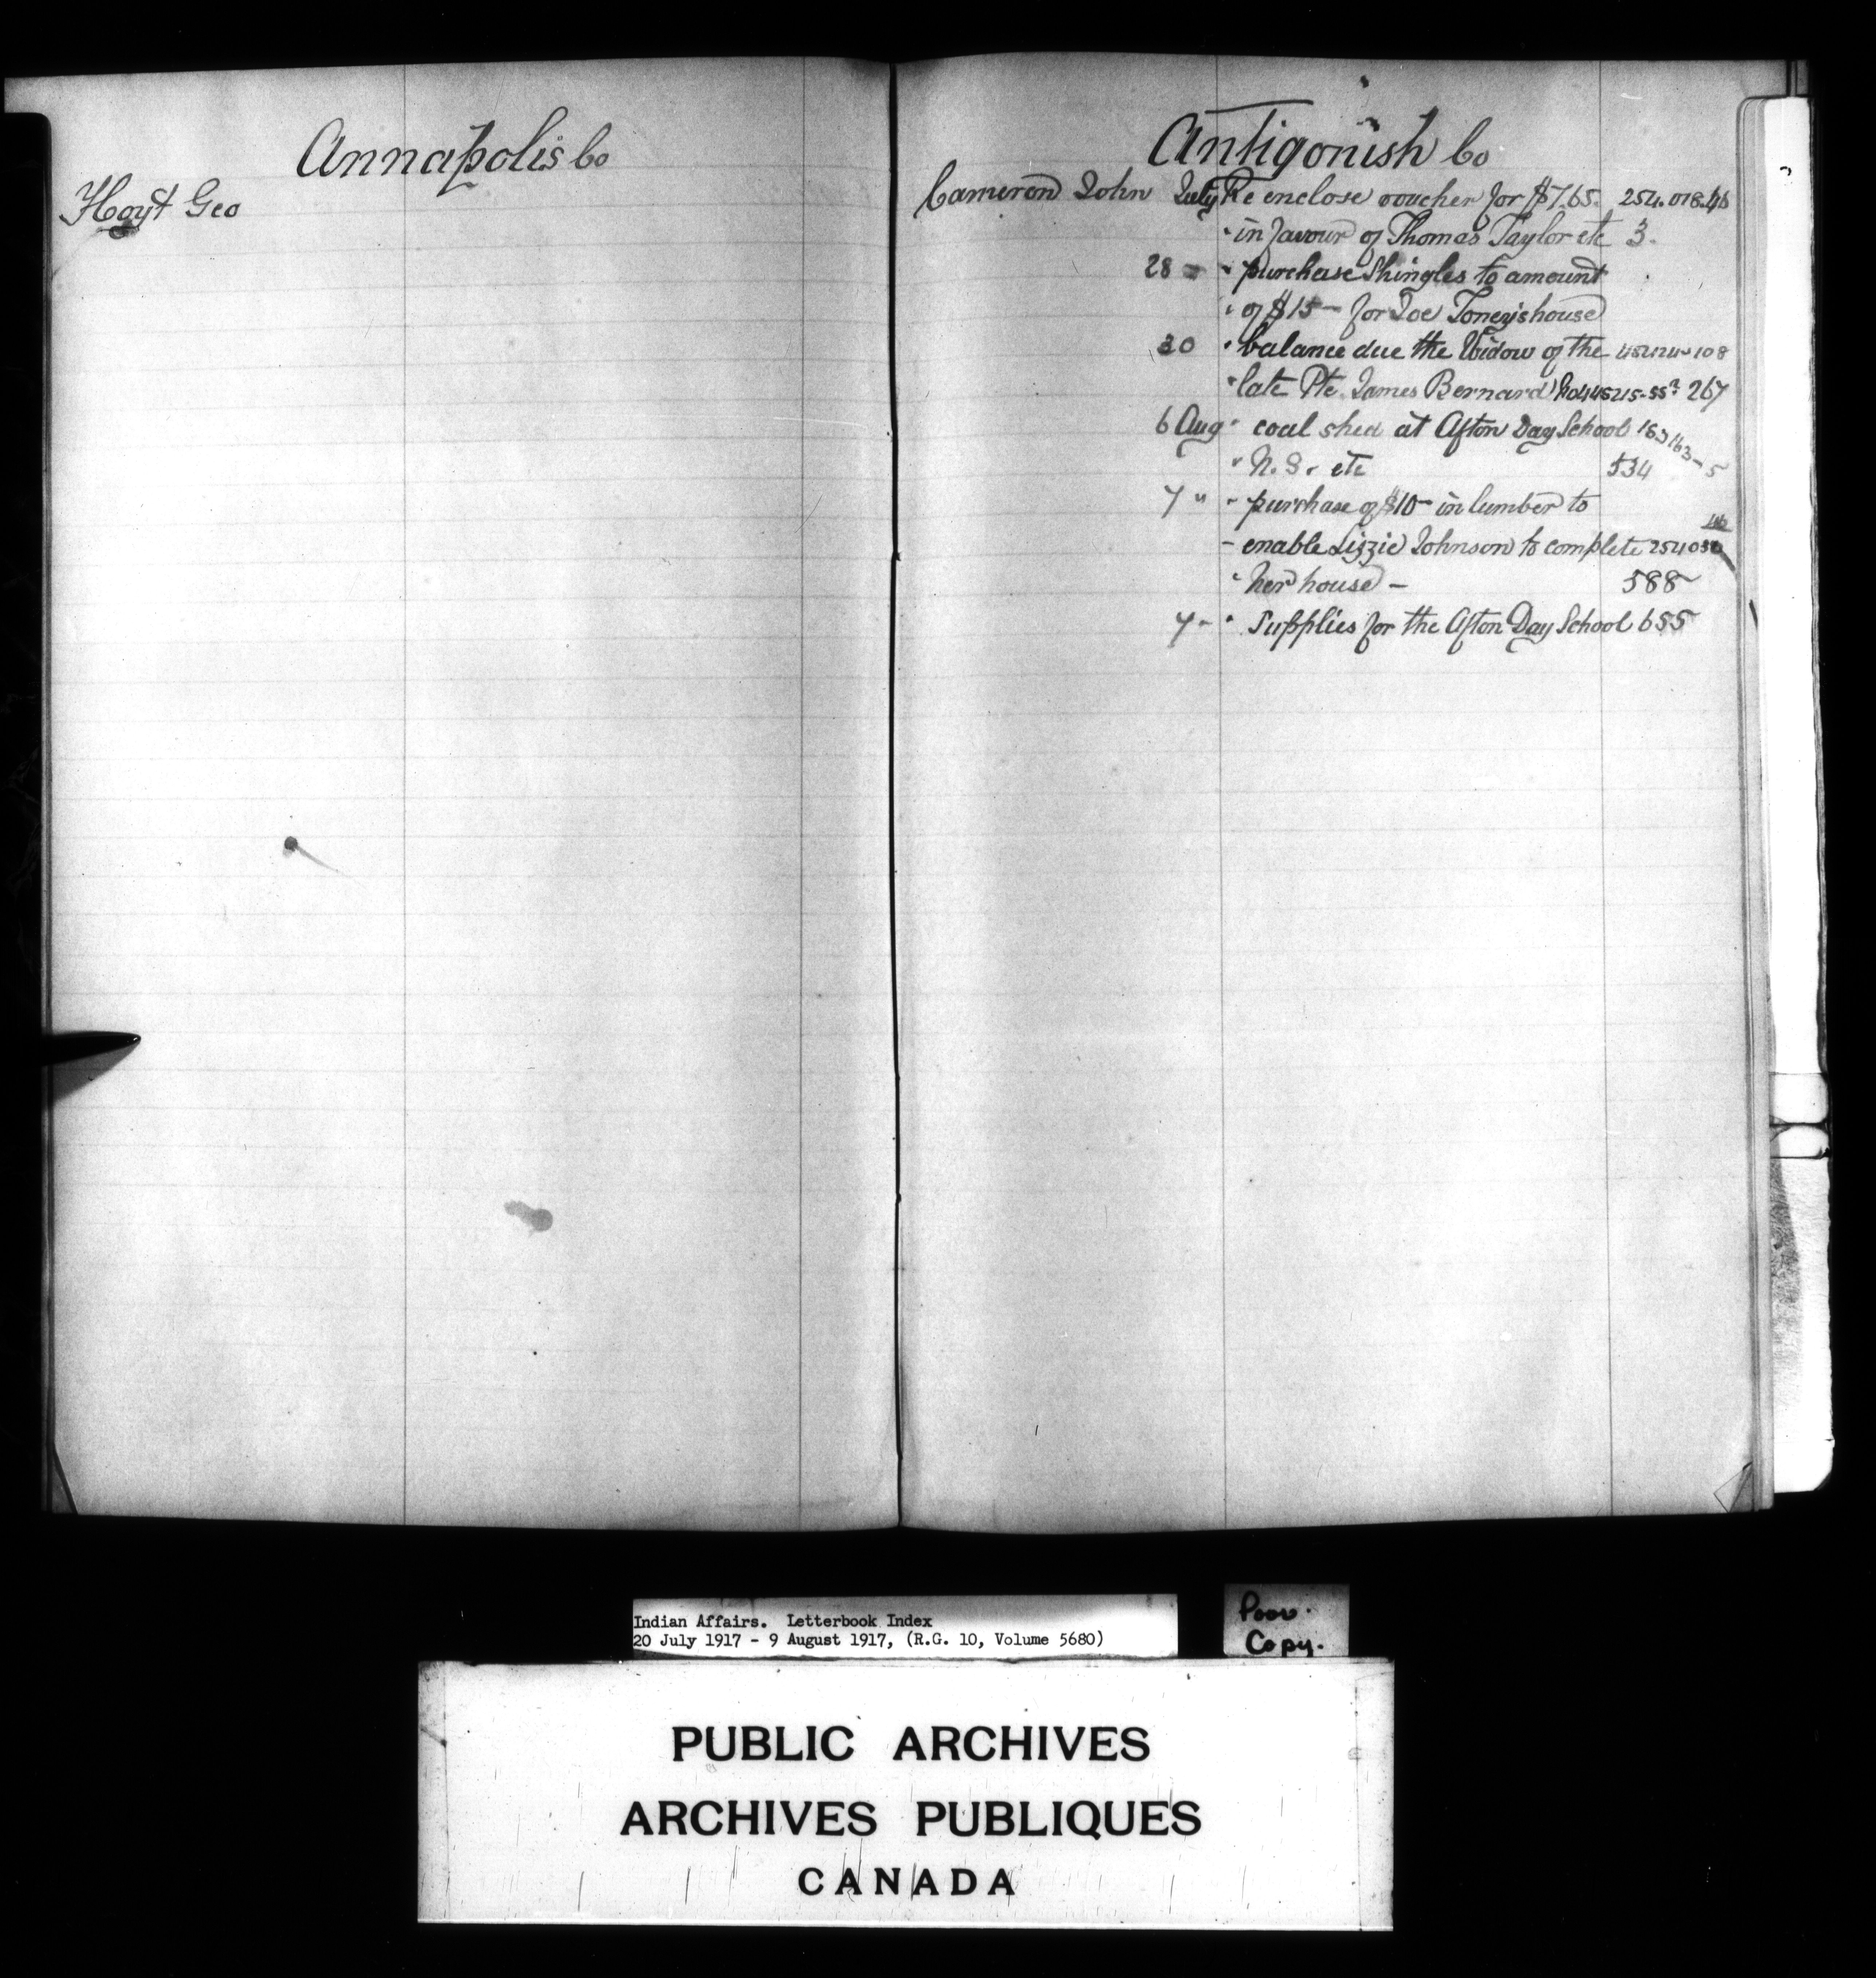 Annapolis Co
Hoyt Geo
Antigonish Co
Cameron John July Re enclose voucher for $7.65. 254.018.46
" in favour of Thomas Taylor etc 3.
28 " " purchase Shingles to amount
" of $15 - for Joe Toney's house
30 " balance due the Widow of the
" late Pte. James Bernard 267
6 Aug " coal shed at Afton Day School 163163-5
" N.S. etc 534
7 " - purchase of $10 - in lumber to
- enable Lizzie Johnson to complete
" her house - 588
7 - " Supplies for the Afton Day School 655
Indian Affairs. Letterbook Index
20 July 1917 - 9 August 1917, (R.G. 10, Volume 5680)
Poor.
Copy.
PUBLIC ARCHIVES
ARCHIVES PUBLIQUES
CANADA